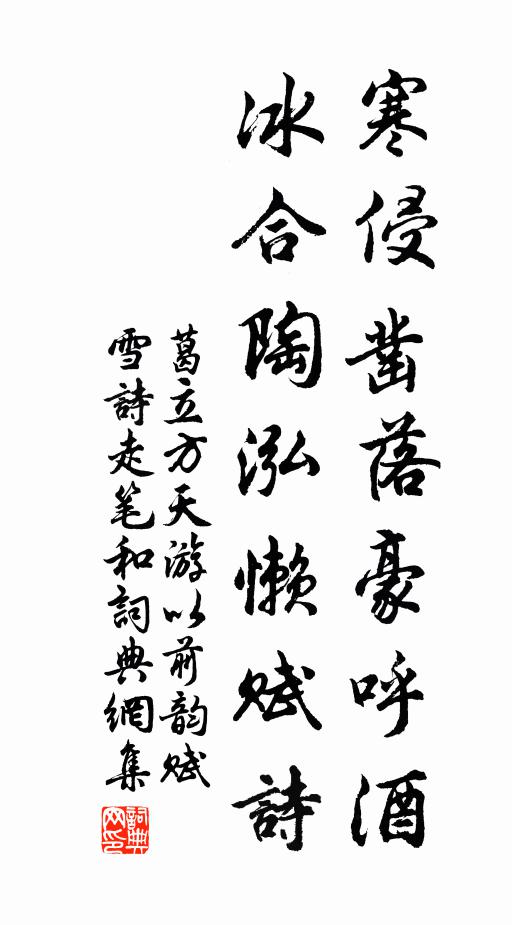 寒侵凿落豪呼酒
冰合陶泓懒赋詩
葛立方天游以前韵赋
雪詩走笔和詞典網集
詞典
网印